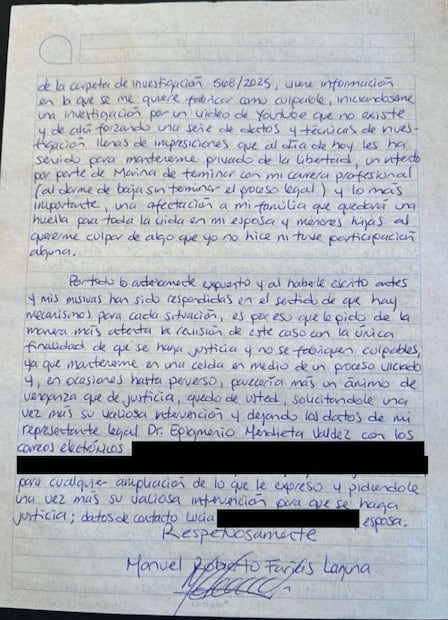 de la carpeta de investigación 568/2025, viene información
en la que se me quiere fabricar como culpable, iniciándoseme
una investigación por un video de Youtube que no existe
y de ahí forzando una serie de datos y técnicas de inves-
tigación llenas de impresiciones que al día de hoy les ha
servido para mantenerme privado de la libertad, un intento
por parte de Marina de terminar con mi carrera profesional
(al darme de baja sin terminar el proceso legal) y lo más
importante, una afectación a mi familia que quedará una
huella para toda la vida en mi esposa y menores hijas al
quererme culpar de algo que yo no hice ni tuve participación
alguna.
Por todo lo anteriormente expuesto y al haberle escrito antes
y mis misivas han sido respondidas en el sentido de que hay
mecanismos para cada situación, es por eso que le pido de la
manera más atenta la revisión de este caso con la única
finalidad de que se haga justicia y no se fabriquen culpables,
ya que mantenerme en una celda en medio de un proceso viciado
y, en ocasiones hasta perverso, parecería más un ánimo de
venganza que de justicia, quedo de usted, solicitándole una
vez más su valiosa intervención y dejando los datos de mi
representante legal Dr. Epigmenio Mendieta Valdez con los
correos electrónicos
para cualquier ampliación de lo que le expreso y pidiéndole
una vez más su valiosa intervención para que se haga
justicia; datos de contacto Lucía esposa.
Respetuosamente
Manuel Roberto Farías Laguna.